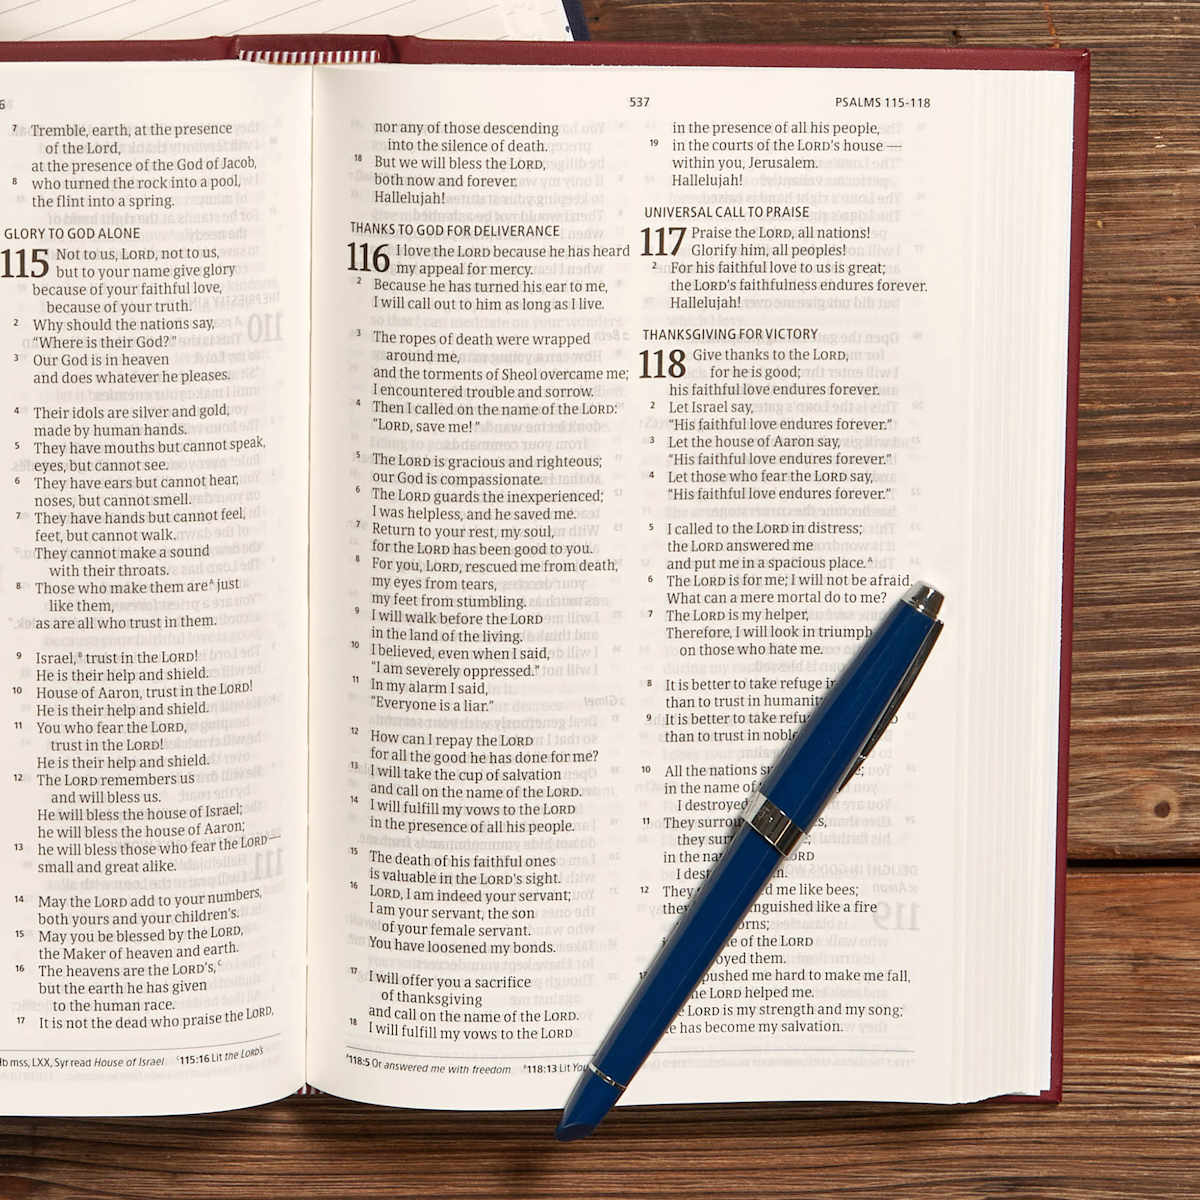 6
7 Tremble, earth, at the presence
of the Lord,
at the presence of the God of Jacob,
8 who turned the rock into a pool,
the flint into a spring.
GLORY TO GOD ALONE
115 Not to us, LORD, not to us,
but to your name give glory
because of your faithful love,
because of your truth.
2 Why should the nations say,
“Where is their God?”
3 Our God is in heaven
and does whatever he pleases.
4 Their idols are silver and gold,
made by human hands.
5 They have mouths but cannot speak,
eyes, but cannot see.
6 They have ears but cannot hear,
noses, but cannot smell.
7 They have hands but cannot feel,
feet, but cannot walk.
They cannot make a sound
with their throats.
8 Those who make them are^A just
like them,
as are all who trust in them.
9 Israel,^B trust in the LORD!
He is their help and shield.
10 House of Aaron, trust in the LORD!
He is their help and shield.
11 You who fear the LORD,
trust in the LORD!
He is their help and shield.
12 The LORD remembers us
and will bless us.
He will bless the house of Israel;
he will bless the house of Aaron;
13 he will bless those who fear the LORD—
small and great alike.
14 May the LORD add to your numbers,
both yours and your children's.
15 May you be blessed by the LORD,
the Maker of heaven and earth.
16 The heavens are the LORD's,^C
but the earth he has given
to the human race.
17 It is not the dead who praise the LORD,
mss, LXX, Syr read House of Israel ^C115:16 Lit the LORD's
537
PSALMS 115-118
nor any of those descending
into the silence of death.
18 But we will bless the LORD,
both now and forever.
Hallelujah!
THANKS TO GOD FOR DELIVERANCE
116 I love the LORD because he has heard
my appeal for mercy.
2 Because he has turned his ear to me,
I will call out to him as long as I live.
3 The ropes of death were wrapped
around me,
and the torments of Sheol overcame me;
I encountered trouble and sorrow.
4 Then I called on the name of the LORD:
“LORD, save me!”
5 The LORD is gracious and righteous;
our God is compassionate.
6 The LORD guards the inexperienced;
I was helpless, and he saved me.
7 Return to your rest, my soul,
for the LORD has been good to you.
8 For you, LORD, rescued me from death,
my eyes from tears,
my feet from stumbling.
9 I will walk before the LORD
in the land of the living.
10 I believed, even when I said,
“I am severely oppressed.”
11 In my alarm I said,
“Everyone is a liar.”
12 How can I repay the LORD
for all the good he has done for me?
13 I will take the cup of salvation
and call on the name of the LORD.
14 I will fulfill my vows to the LORD
in the presence of all his people.
15 The death of his faithful ones
is valuable in the LORD's sight.
16 LORD, I am indeed your servant;
I am your servant, the son
of your female servant.
You have loosened my bonds.
17 I will offer you a sacrifice
of thanksgiving
and call on the name of the LORD.
18 I will fulfill my vows to the LORD
in the presence of all his people,
19 in the courts of the LORD's house —
within you, Jerusalem.
Hallelujah!
UNIVERSAL CALL TO PRAISE
117 Praise the LORD, all nations!
Glorify him, all peoples!
2 For his faithful love to us is great;
the LORD's faithfulness endures forever.
Hallelujah!
THANKSGIVING FOR VICTORY
118 Give thanks to the LORD,
for he is good;
his faithful love endures forever.
2 Let Israel say,
“His faithful love endures forever.”
3 Let the house of Aaron say,
“His faithful love endures forever.”
4 Let those who fear the LORD say,
“His faithful love endures forever.”
5 I called to the LORD in distress;
the LORD answered me
and put me in a spacious place.^A
6 The LORD is for me; I will not be afraid.
What can a mere mortal do to me?
7 The LORD is my helper,
Therefore, I will look in triumph
on those who hate me.
8 It is better to take refuge
than to trust in
9 It is better to take
than to trust in
10 All the nations
in the name of
I destroyed
11 They
they
in the LORD
I
12 They me like bees;
like a fire
of the LORD
them.
pushed me hard to make me fall,
LORD helped me.
LORD is my strength and my song;
has become my salvation.
^A118:5 Or answered me with freedom ^B118:13 Lit You